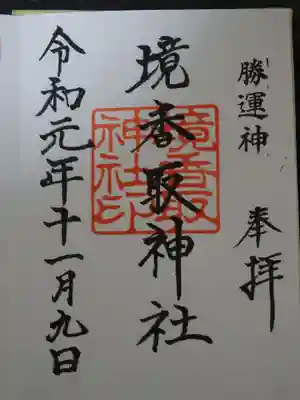 勝運神
奉拝
境香取神社
境香取神社印
令和元年十一月九日